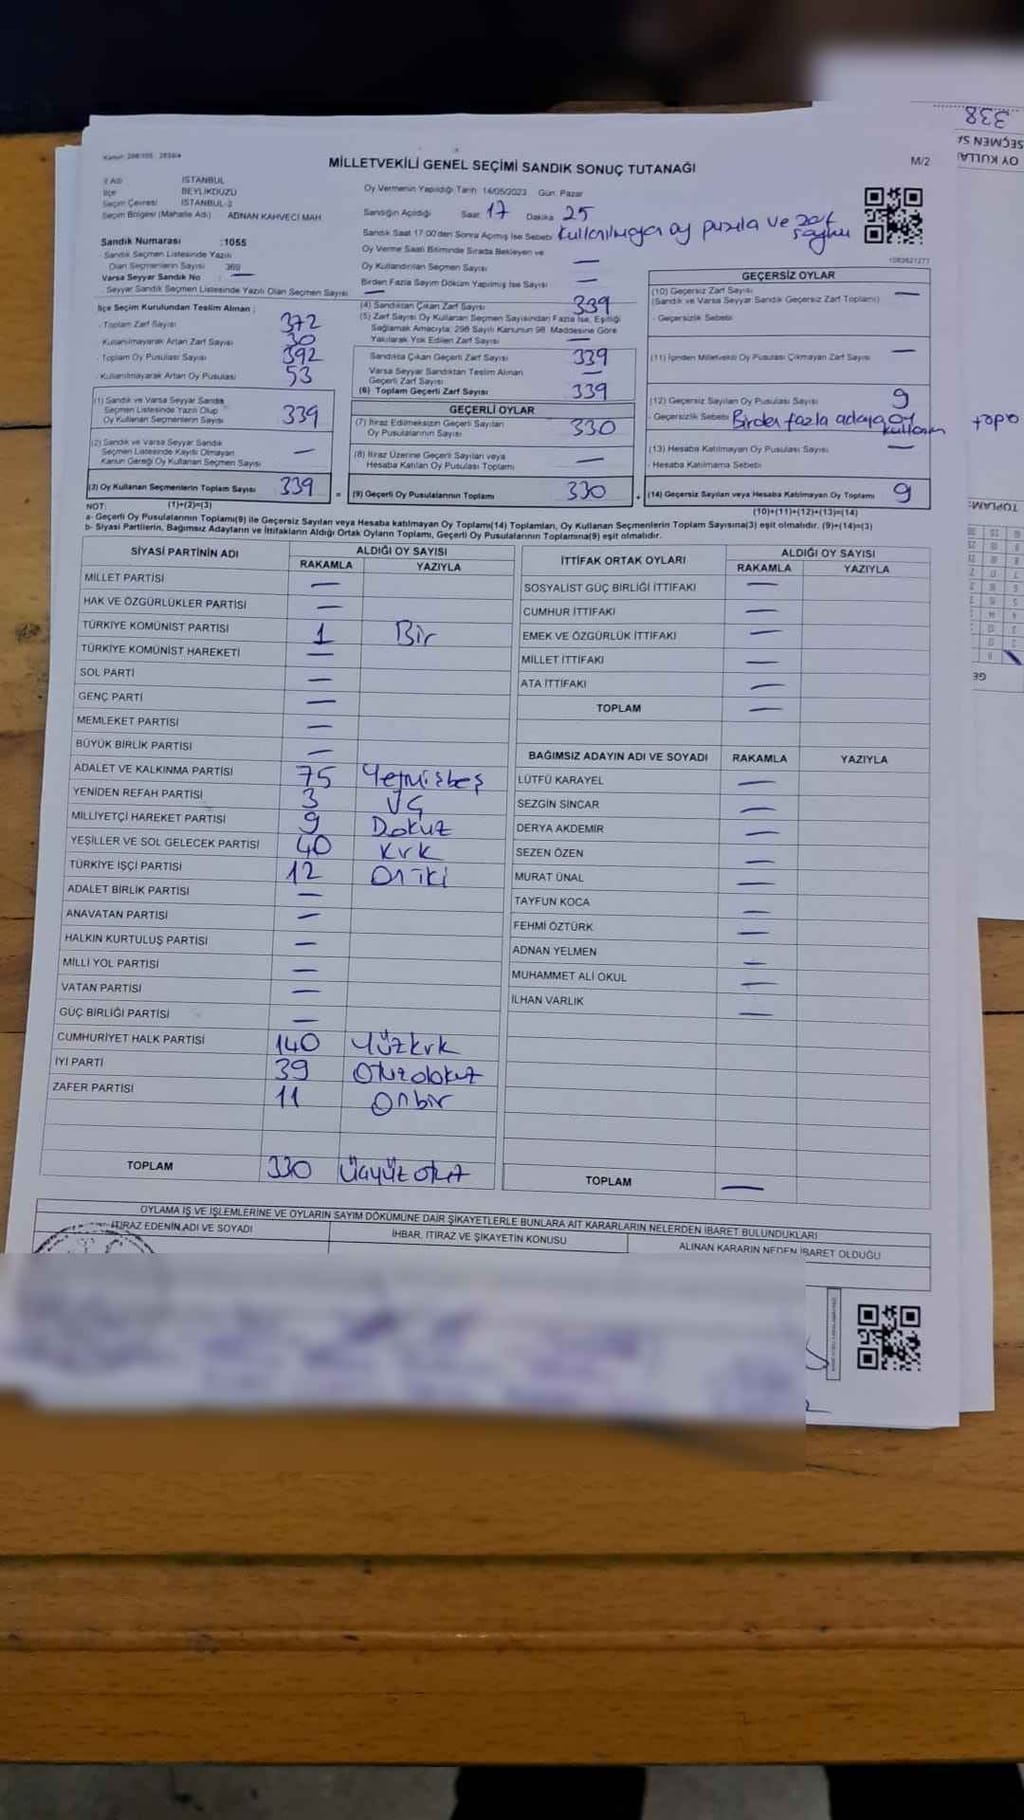 338
MİLLETVEKİLİ GENEL SEÇİMİ SANDIK SONUÇ TUTANAĞI
M/2
İl Adı İSTANBUL
İlçe BEYLİKDÜZÜ
Seçim Çevresi İSTANBUL-3
Seçim Bölgesi (Mahalle Adı) ADNAN KAHVECİ MAH
Oy Vermenin Yapıldığı Tarih 14/05/2023 Gün: Pazar
Sandığın Açıldığı Saat 17 Dakika 25
Sandık Saat 17.00'den Sonra Açılmış İse Sebebi kullanılmayan oy pusula ve zarf sayımı
Oy Verme Saati Bitiminde Sırada Bekleyen ve
Oy Kullandırılan Seçmen Sayısı —
Birden Fazla Sayım Döküm Yapılmış İse Sayısı —
Sandık Numarası :1055
Sandık Seçmen Listesinde Yazılı
Olan Seçmenlerin Sayısı 369
Varsa Seyyar Sandık No —
Seyyar Sandık Seçmen Listesinde Yazılı Olan Seçmen Sayısı —
İlçe Seçim Kurulundan Teslim Alınan ;
Toplam Zarf Sayısı 372
Kullanılmayarak Artan Zarf Sayısı 30
Toplam Oy Pusulası Sayısı 392
Kullanılmayarak Artan Oy Pusulası 53
(1) Sandık ve Varsa Seyyar Sandık
Seçmen Listesinde Yazılı Olup
Oy Kullanan Seçmenlerin Sayısı 339
(2) Sandık ve Varsa Seyyar Sandık
Seçmen Listesinde Kayıtlı Olmayan
Kanun Gereği Oy Kullanan Seçmen Sayısı —
(3) Oy Kullanan Seçmenlerin Toplam Sayısı 339
(1)+(2)=(3)
(4) Sandıktan Çıkan Zarf Sayısı 339
(5) Zarf Sayısı Oy Kullanan Seçmen Sayısından Fazla İse, Eşitliği
Sağlamak Amacıyla; 298 Sayılı Kanunun 98. Maddesine Göre
Yakılarak Yok Edilen Zarf Sayısı —
Sandıkta Çıkan Geçerli Zarf Sayısı 339
Varsa Seyyar Sandıktan Teslim Alınan
Geçerli Zarf Sayısı —
(6) Toplam Geçerli Zarf Sayısı 339
GEÇERLİ OYLAR
(7) İtiraz Edilmeksizin Geçerli Sayılan
Oy Pusulalarının Sayısı 330
(8) İtiraz Üzerine Geçerli Sayılan veya
Hesaba Katılan Oy Pusulası Toplamı —
= (9) Geçerli Oy Pusulalarının Toplamı 330
GEÇERSİZ OYLAR
(10) Geçersiz Zarf Sayısı —
(Sandık ve Varsa Seyyar Sandık Geçersiz Zarf Toplamı)
- Geçersizlik Sebebi
(11) İçinden Milletvekili Oy Pusulası Çıkmayan Zarf Sayısı —
(12) Geçersiz Sayılan Oy Pusulası Sayısı 9
- Geçersizlik Sebebi Birden fazla adaya oy kullanım
(13) Hesaba Katılmayan Oy Pusulası Sayısı —
- Hesaba Katılmama Sebebi
+ (14) Geçersiz Sayılan veya Hesaba Katılmayan Oy Toplamı 9
(10)+(11)+(12)+(13)=(14)
NOT:
a- Geçerli Oy Pusulalarının Toplamı(9) ile Geçersiz Sayılan veya Hesaba katılmayan Oy Toplam(14) Toplamları, Oy Kullanan Seçmenlerin Toplam Sayısına(3) eşit olmalıdır. (9)+(14)=(3)
b- Siyasi Partilerin, Bağımsız Adayların ve İttifakların Aldığı Ortak Oyların Toplamı, Geçerli Oy Pusulalarının Toplamına(9) eşit olmalıdır.
SİYASİ PARTİNİN ADI ALDIĞI OY SAYISI
RAKAMLA YAZIYLA
MİLLET PARTİSİ —
HAK VE ÖZGÜRLÜKLER PARTİSİ —
TÜRKİYE KOMÜNİST PARTİSİ 1 Bir
TÜRKİYE KOMÜNİST HAREKETİ —
SOL PARTİ —
GENÇ PARTİ —
MEMLEKET PARTİSİ —
BÜYÜK BİRLİK PARTİSİ —
ADALET VE KALKINMA PARTİSİ 75 Yetmişbeş
YENİDEN REFAH PARTİSİ 3 Üç
MİLLİYETÇİ HAREKET PARTİSİ 9 Dokuz
YEŞİLLER VE SOL GELECEK PARTİSİ 40 Kırk
TÜRKİYE İŞÇİ PARTİSİ 12 Oniki
ADALET BİRLİK PARTİSİ —
ANAVATAN PARTİSİ —
HALKIN KURTULUŞ PARTİSİ —
MİLLİ YOL PARTİSİ —
VATAN PARTİSİ —
GÜÇ BİRLİĞİ PARTİSİ —
CUMHURİYET HALK PARTİSİ 140 Yüzkırk
İYİ PARTİ 39 Otuzdokuz
ZAFER PARTİSİ 11 Onbir
TOPLAM 330 Üçyüz otuz
İTTİFAK ORTAK OYLARI ALDIĞI OY SAYISI
RAKAMLA YAZIYLA
SOSYALİST GÜÇ BİRLİĞİ İTTİFAKI —
CUMHUR İTTİFAKI —
EMEK VE ÖZGÜRLÜK İTTİFAKI —
MİLLET İTTİFAKI —
ATA İTTİFAKI —
TOPLAM —
BAĞIMSIZ ADAYIN ADI VE SOYADI RAKAMLA YAZIYLA
LÜTFÜ KARAYEL —
SEZGİN SİNCAR —
DERYA AKDEMİR —
SEZEN ÖZEN —
MURAT ÜNAL —
TAYFUN KOCA —
FEHMİ ÖZTÜRK —
ADNAN YELMEN —
MUHAMMET ALİ OKUL —
İLHAN VARLIK —
TOPLAM —
OYLAMA İŞ VE İŞLEMLERİNE VE OYLARIN SAYIM DÖKÜMÜNE DAİR ŞİKAYETLERLE BUNLARA AİT KARARLARIN NELERDEN İBARET BULUNDUKLARI
İTİRAZ EDENİN ADI VE SOYADI İHBAR, İTİRAZ VE ŞİKAYETİN KONUSU ALINAN KARARIN NEDEN İBARET OLDUĞU